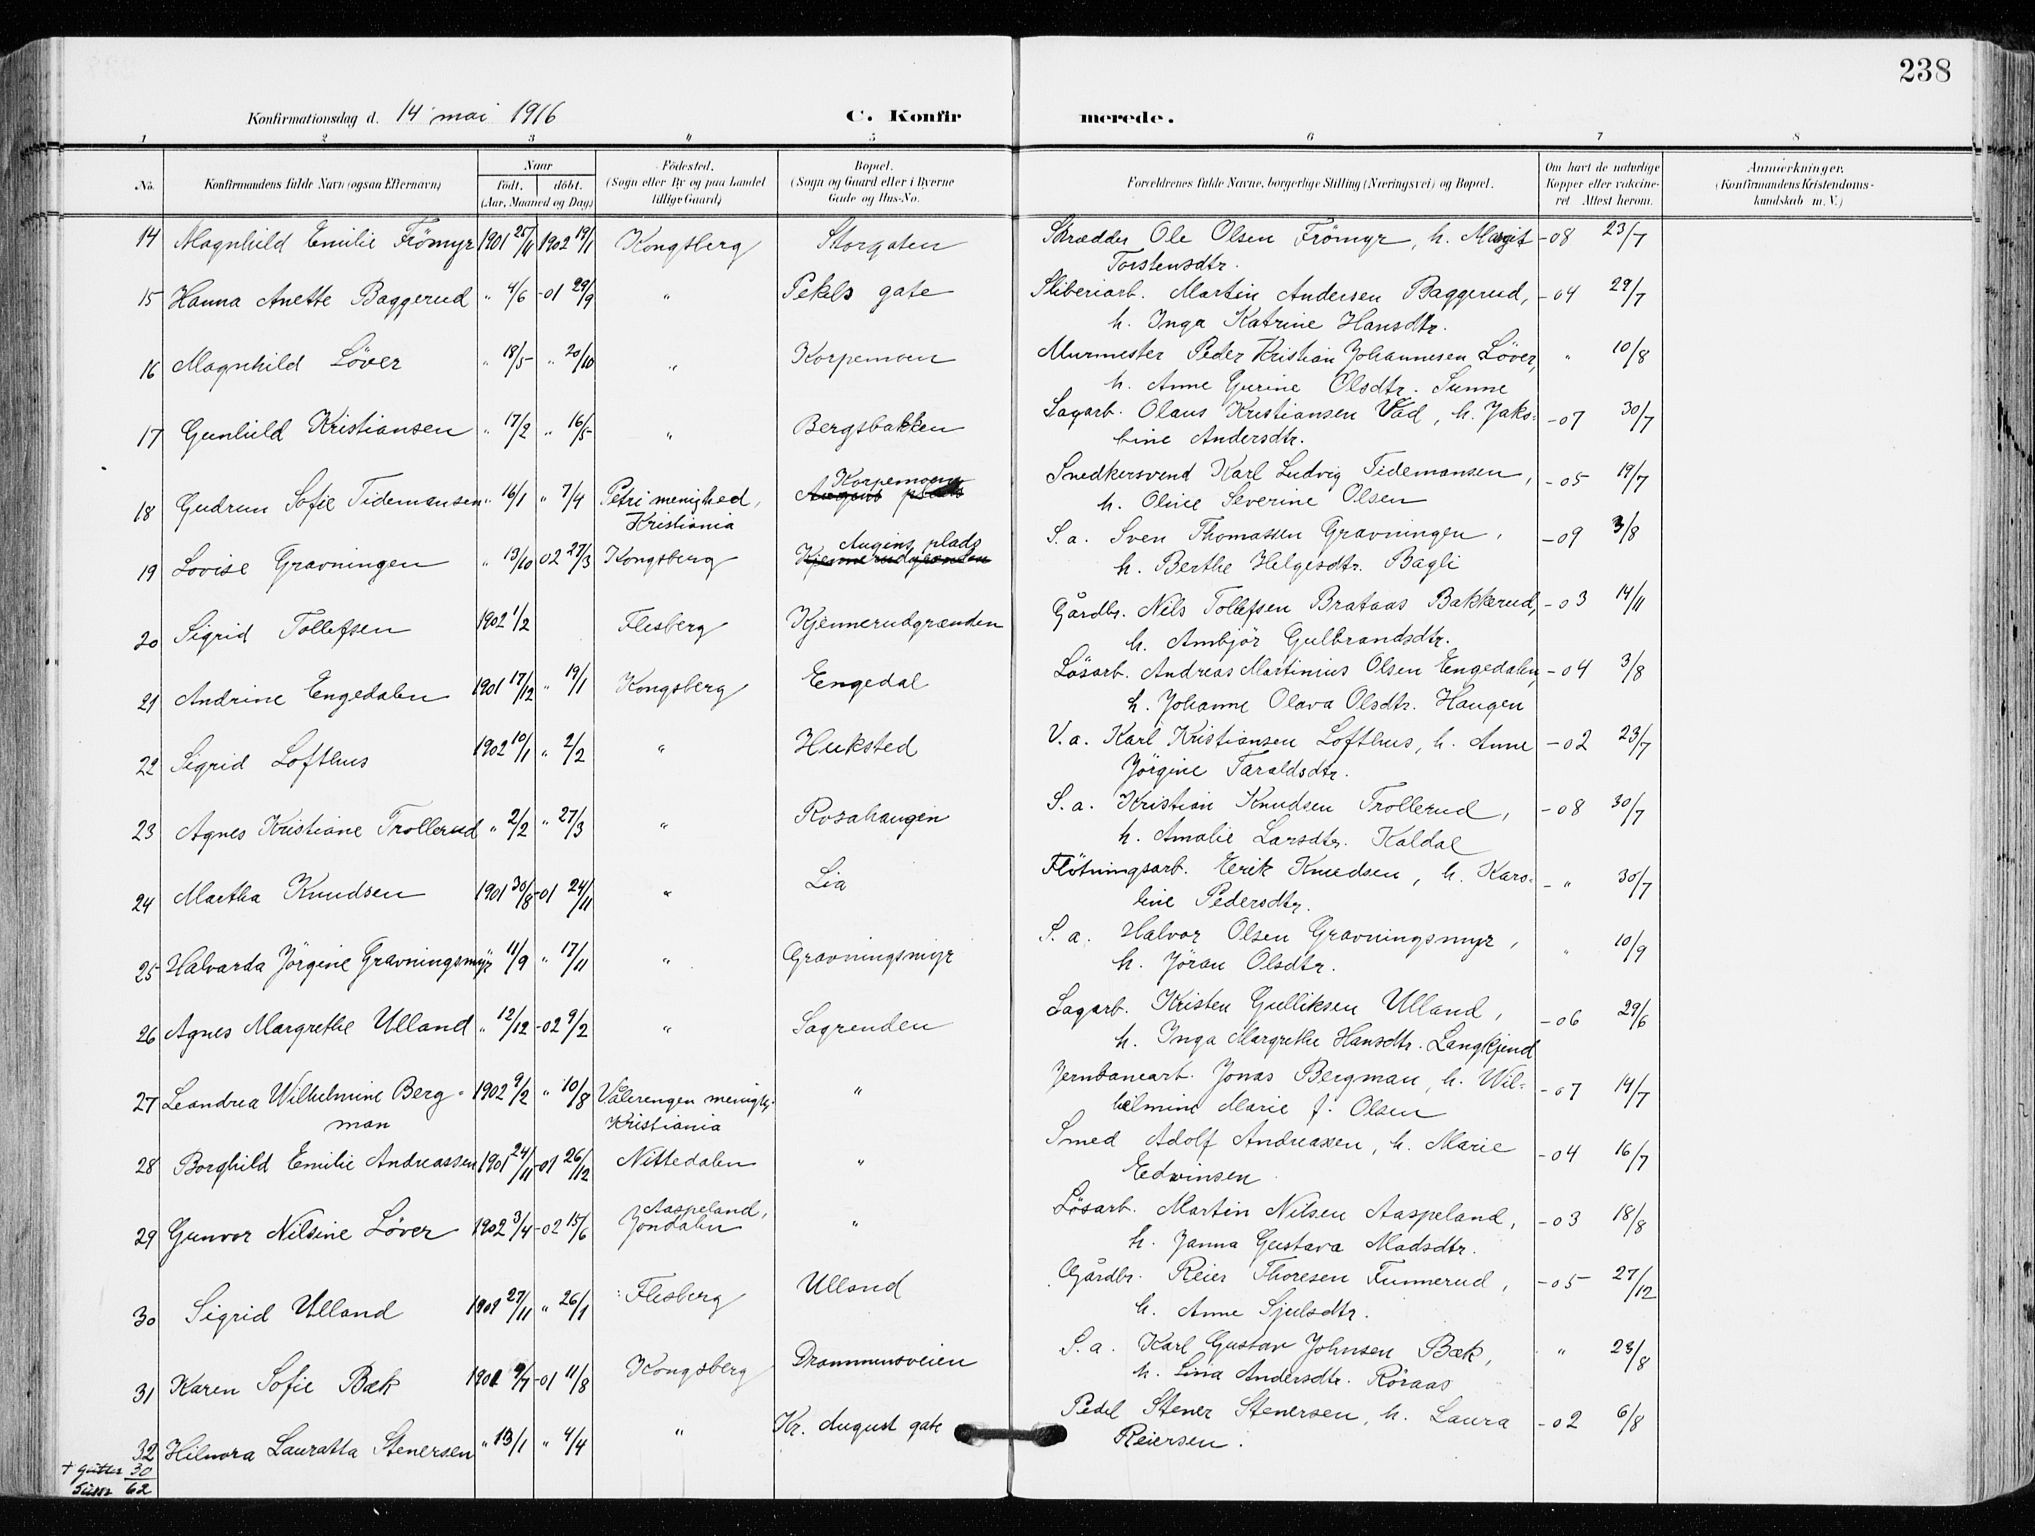 238
Konfirmationsdag d. 14 mai 1916 C. Konfirmerede.
1 2 3 4 5 6 7 8
No. Konfirmandens fulde Navn (ogsaa Efternavn) Naar födt. döbt. (Aar, Maaned og Dag) Födested. (Sogn eller By og paa Landet tillige Gaard) Bopæl. (Sogn og Gaard eller i Byerne Gade og Hus-No. Forældrenes fulde Navne, borgerlige Stilling (Næringsvei) og Bopæl. Om havt de naturlige Kopper eller vakcineret Attest herom. Anmærkninger. (Konfirmandens Kristendomskundskab m. V.)
14 Magnhild Emilie Frömyr 1901 25/11 1902 19/1 Kongsberg Storgaten Skrædder Ole Olsen Frömyr, h. Margit -08 23/7
Torstensdtr.
15 Hanna Anette Baggerud " 4/6 -01 29/9 " Pekels gate Sliberiarb. Martin Andersen Baggerud, -04 29/7
h. Inga Katrine Hansdtr.
16 Magnhild Löver " 18/5 " 20/10 " Korpemoen Murmester Peder Kristian Johannesen Löver, " 10/8
h. Anne Gurine Olsdtr. Sunne
17 Gunhild Kristiansen " 17/2 " 16/5 " Bergsbakken Sagarb. Olaus Kristiansen Vad, h. Jako- -07 30/7
bine Andersdtr.
18 Gudrun Sofie Tidemansen " 16/1 " 7/4 Petri menighed, Kristiania Korpemoen Snedkersvend Karl Ludvig Tidemansen, -05 19/7
h. Oline Severine Olsen
19 Lovise Gravningen " 13/10 02 27/3 Kongsberg Augins plads Kjennerudgrænden S.a. Sven Thomassen Gravningen, -09 3/8
h. Berthe Helgesdtr. Bagli
20 Sigrid Tollefsen 1902 1/2 Flesberg Kjennerudgrænden Gårdbr. Nils Tollefsen Brataas Bakkerud, -03 14/11
h. Ambjör Gulbrandsdtr.
21 Andrine Engedalen 1901 17/12 " 19/1 Kongsberg Engedal Lösarb. Andreas Martinius Olsen Engedalen, -04 3/8
h. Johanne Olava Olsdtr. Haugen
22 Sigrid Lofthus 1902 10/1 " 2/2 " Huksted V.a. Karl Kristiansen Lofthus, h. Anne -02 23/7
Jörgine Taraldsdtr.
23 Agnes Kristiane Trollerud " 2/2 " 27/3 " Rosahaugen S.a. Kristian Knudsen Trollerud, -08 30/7
h. Amalie Larsdtr. Kaldal
24 Martha Knudsen 1901 30/8 -01 24/11 " Lia Flötningsarb. Eerik Knudsen, h. Karo- -" 30/7
line Pedersdtr.
25 Halvarda Jörgine Gravningsmyr " 11/9 " 17/11 " Gravningsmyr S.a. Halvor Olsen Gravningsmyr, " 10/9
h. Jöran Olsdtr.
26 Agnes Margrethe Ulland " 12/12 -02 9/2 " Sagrenden Sagarb. Kristen Gulliksen Ulland, -06 29/6
h. Inga Margrethe Hansdtr. Langkjend
27 Leandrea Wilhelmine Berg- 1902 9/2 " 10/8 Vålerengen menigh. " Jernbanearb. Jonas Bergman, h. Wil- -07 14/7
man Kristiania helmine Marie f. Olsen
28 Borghild Emilie Andreassen 1901 24/11 -01 26/12 Nittedalen " Smed Adolf Andreassen, h. Marie -04 16/7
Eedvinsen
29 Gunvor Nilsine Löver 1902 3/4 -02 15/6 Aaspeland, Jondalen " Lösarb. Martin Nilsen Aaspeland, -03 18/8
h. Janna Gustava Madsdtr.
30 Sigrid Ulland 1901 27/11 " 26/1 Flesberg Ulland Gårdbr. Reier Thoresen Funnerud, -05 27/12
h. Anne Sjulsdtr.
31 Karen Sofie Bæk 1901 9/7 -01 11/8 Kongsberg Drammensveien S.a. Karl Gustav Johnsen Bæk, " 23/8
h. Lina Andersdtr. Röraas
32 Hilnora Lauratta Stenersen " 13/1 " 4/4 " Kr. August gate Pedel Stener Stenersen, h. Laura -02 6/8
Reiersen.
+ Gutter 30
62